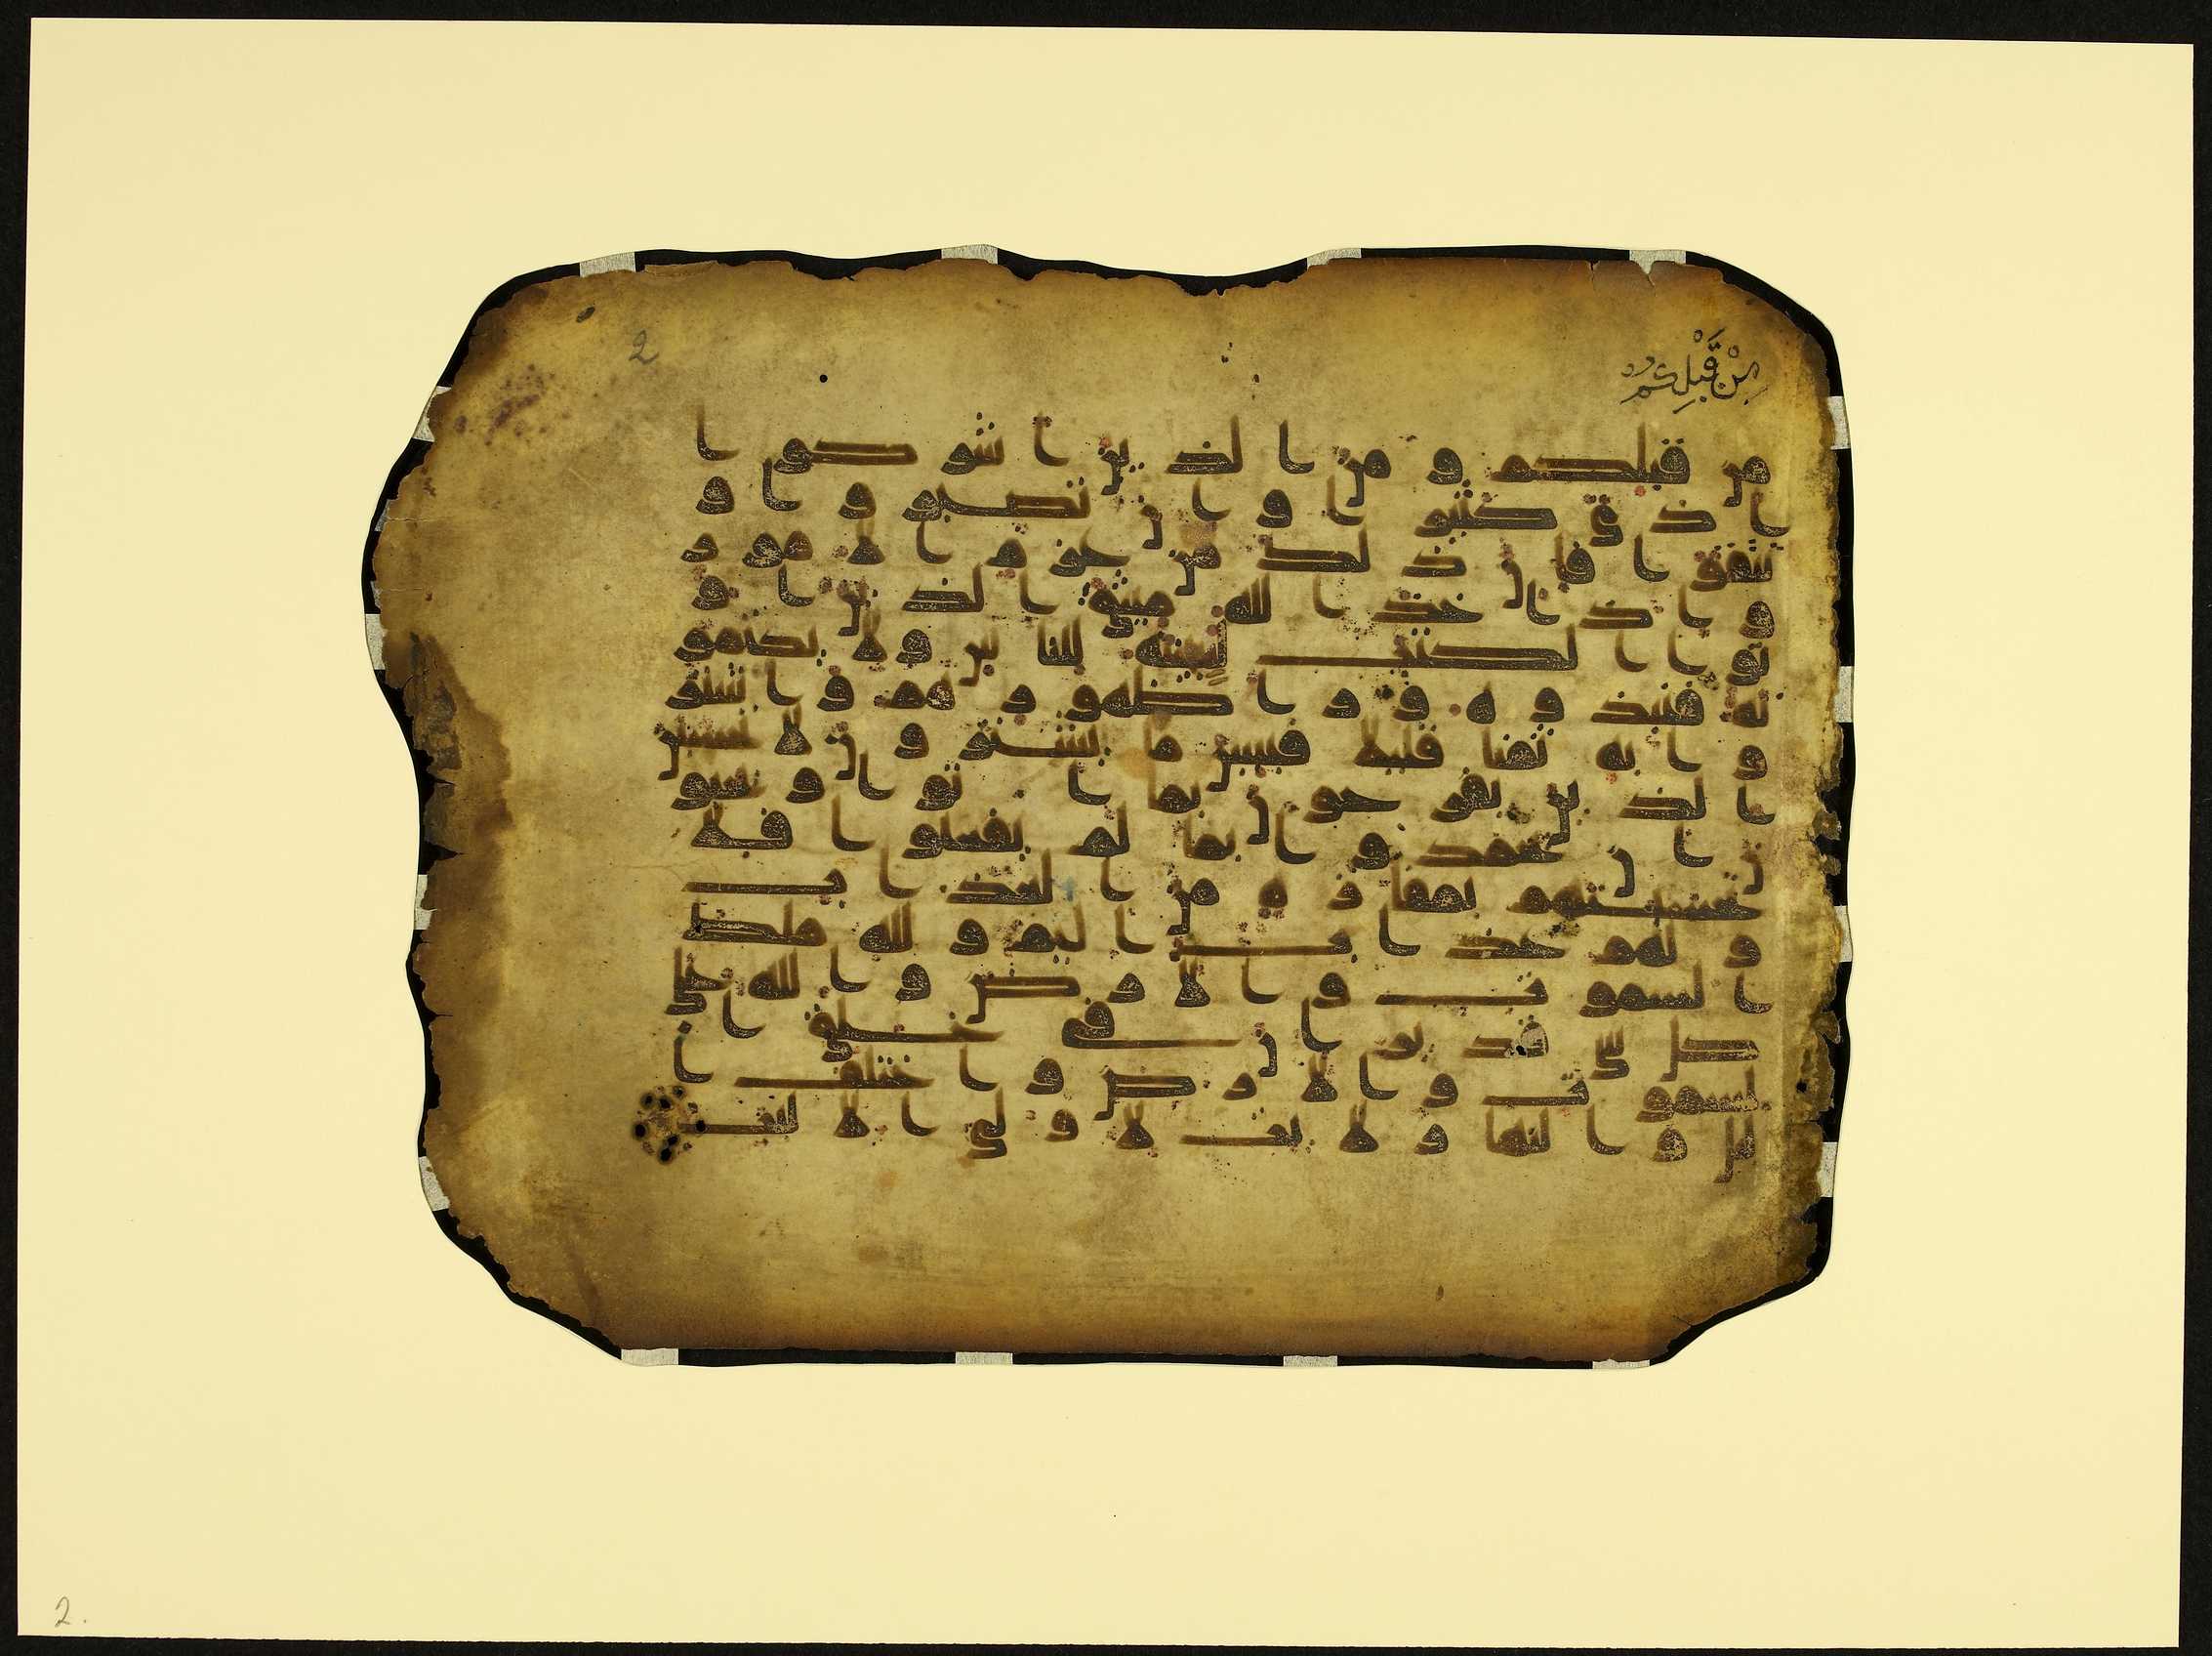 2
مِنْ قَبْلِكُمْ
من قبلكم ومن الذين اشركوا
اذى كثيرا وان تصبروا و
تتقوا فان ذلك من عزم الامور
واذ اخذ الله ميثق الذين ا و
توا الكتب لتبيننه للناس ولا تكتمو
نه فنبذوه ورا ظهورهم واشتر
وا به ثمنا قليلا فبيس ما يشترون لا تحسبن
الذين يفرحون بما اتوا ويحبو
ن ان يحمدوا بما لم يفعلوا فلا
تحسبنهم بمفازة من العذاب
ولهم عذاب اليم ولله ملك
السموت والارض والله على
كل شى قدير ان فى خلق ا
لسموت والارض واختلف ا
ليل والنهار لايت لاولى الالبب
2.